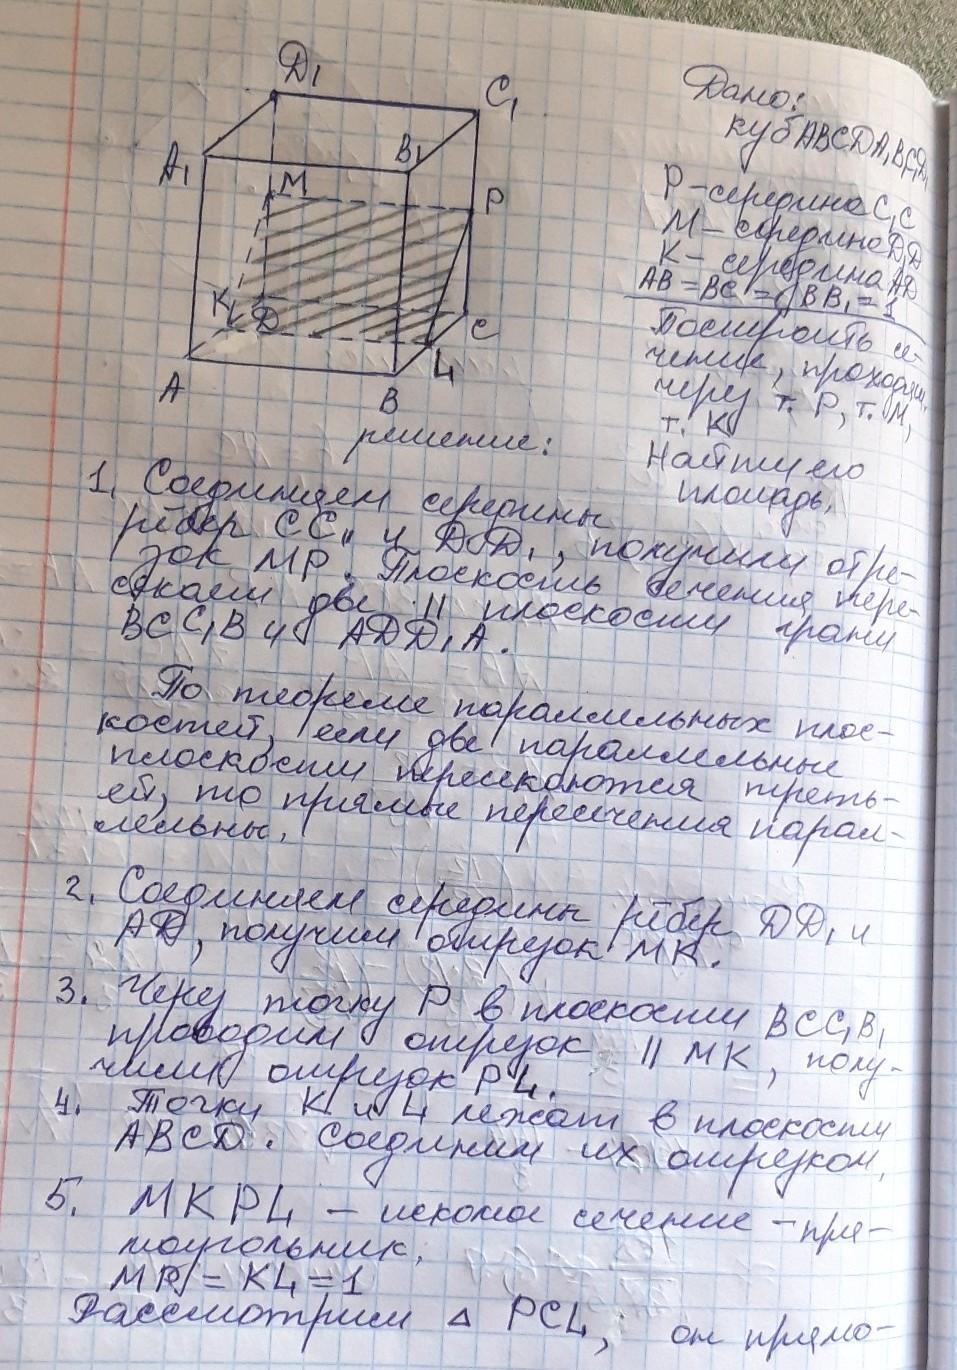 D₁
C₁
A₁
B₁
M
P
K
D
C
L
A
B
Дано:
куб ABCDA₁B₁C₁D₁
P – середина C₁C
M – середина D₁D
K – середина AD
AB = BC = BB₁ = 1
Построить се-
чение, проходящ.
через т. P, т. M,
т. K
Найти его
площадь.
решение:
1. Соединяем середины
рёбер CC₁ и DD₁, получили отре-
зок MP. Плоскость сечения пере-
секает две || плоскости грани
BCC₁B и ADD₁A.
По теореме параллельных плос-
костей, если две параллельные
плоскости пересекаются треть-
ей, то прямые пересечения парал-
лельны.
2. Соединяем середины рёбер DD₁ и
AD, получим отрезок MK.
3. Через точку P в плоскости BCC₁B₁
проводим отрезок || MK, полу-
чили отрезок PL.
4. Точки K и L лежат в плоскости
ABCD. Соединим их отрезком.
5. MKPL – искомое сечение – пря-
моугольник.
MP = KL = 1
Рассмотрим △ PCL, он прямо-